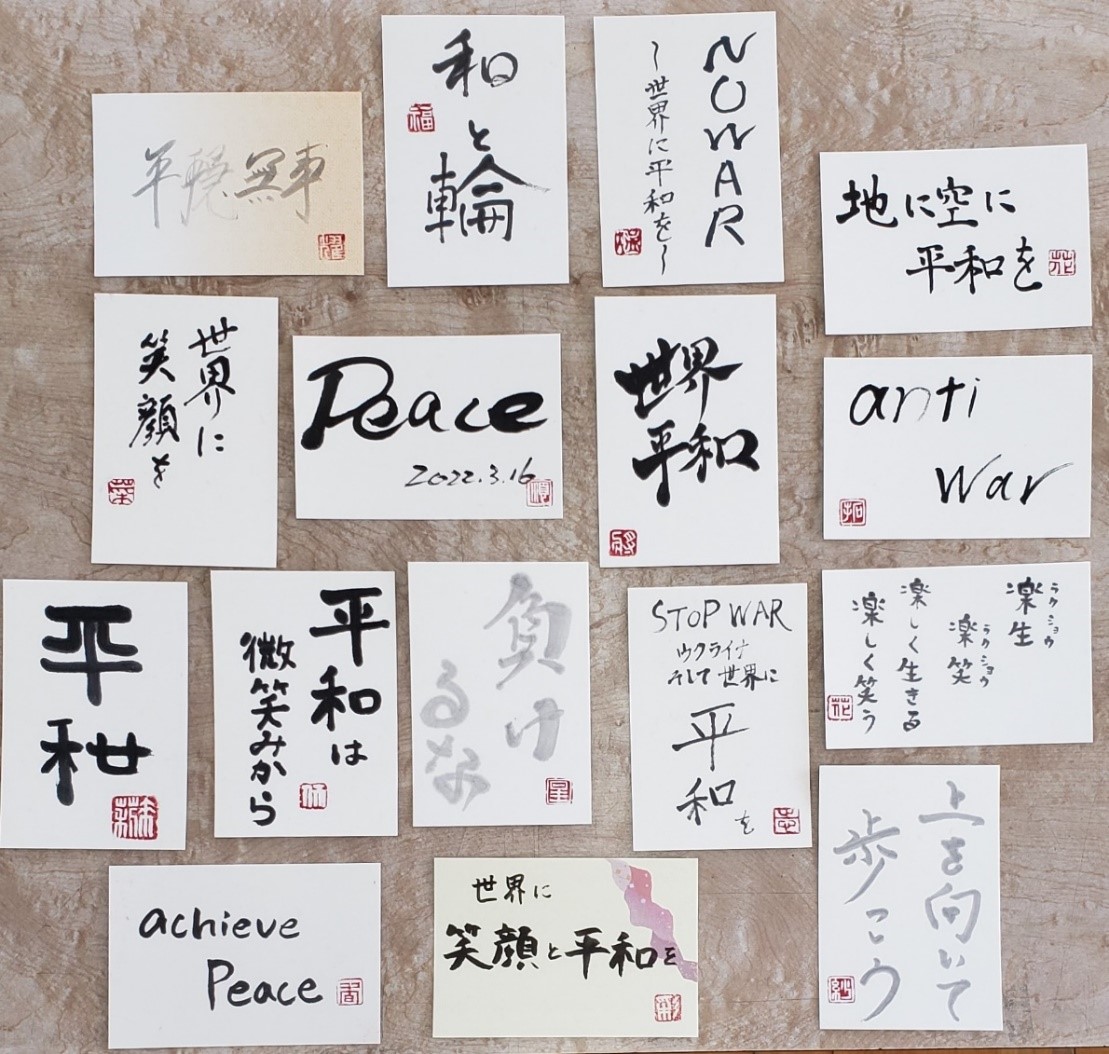 平穏無事
和
と
輪
福
NO WAR
～世界に平和を～
地に空に
平和を
花
世界に
笑顔を
菜
Peace
2022.3.16
順
世界
平和
anti
war
拓
平
和
平和は
微笑みから
負け
るな
STOP WAR
ウクライナ
そして世界に
平
和を
楽生
ラクショウ
楽笑
ラクショウ
楽しく生きる
楽しく笑う
花
achieve
Peace
世界に
笑顔と平和を
上を向いて
歩こう